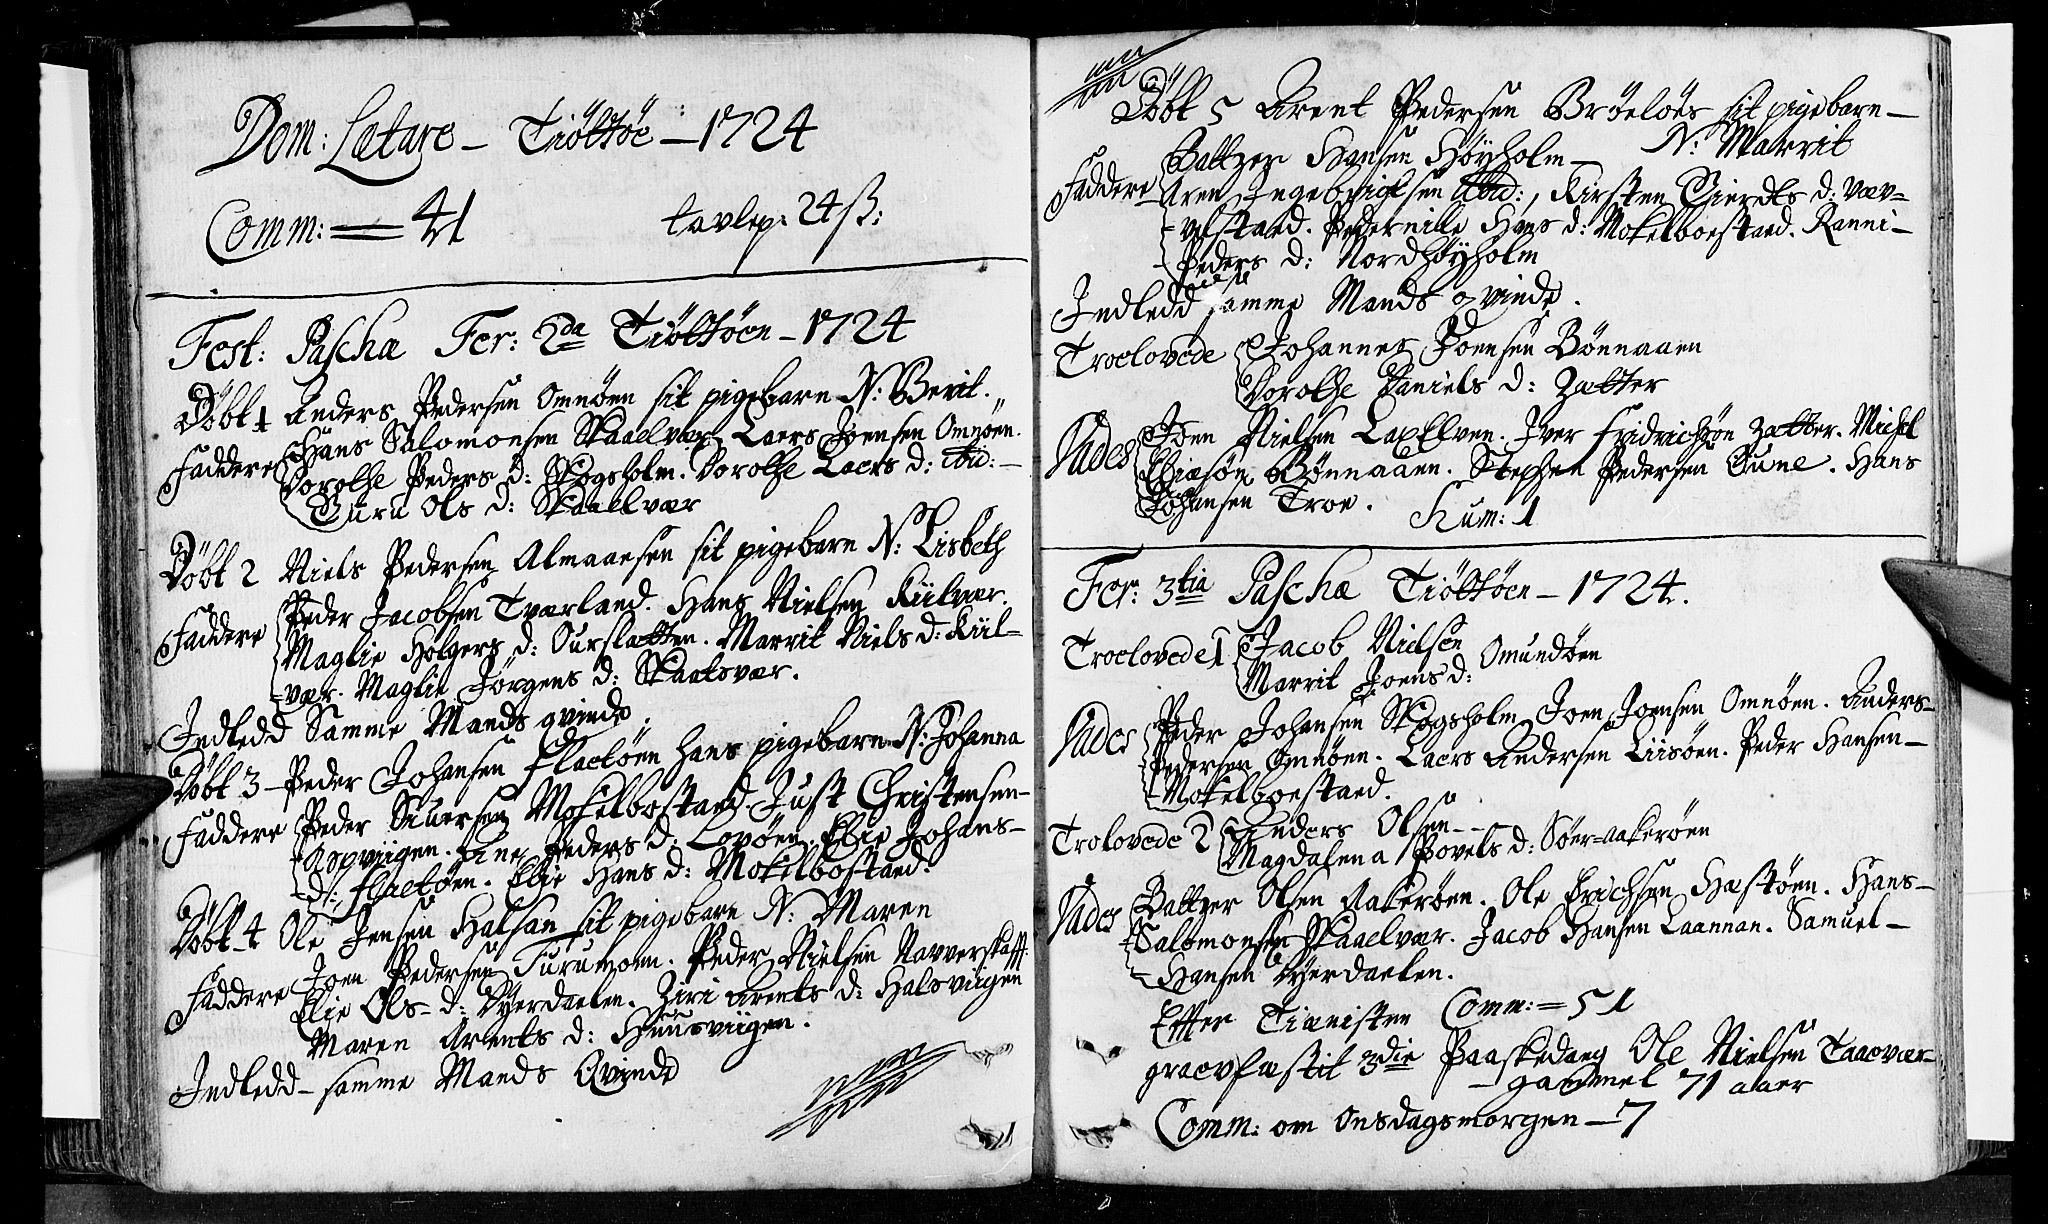 Dom: Lætare – Tiöttöe – 1724
Comm: = 41 tavlep: 24 ß:
Fest: Paschæ Fer: 2da Tiöttöen – 1724
Döbt 1 Anders Pedersen Omnöen sit pigebarn N: Berit.
Faddere Hans Salomonsen Skaalvær, Laers Joensen Omnöen.
Dorothe Peders d: Skogsholm. Dorothe Laers d: ibid: –
Guru Ols d: Skaallvær
Döbt 2 Niels Pedersen Almaansen sit pigebarn N: Lisbeth
Faddere Peder Jacobsen Tværland. Hans Nielsen Kiilvær.
Maglie Holgers d: Ourslætten. Marrit Niels d: Kiil-
-vær. Maglie Jörgens d: Skaalsvær.
Indledd Samme Mands qvinde.
Döbt 3 – Peder Johansen Flaetöen hans pigebarn N: Johanna
Faddere Peder Siuersen Mokelbostaed. Just Christensen –
Aspviigen. Ane Peders d: Lovöen. Elie Johans –
– d: Flaetöen. Elie Hans d: Mokelbostaed.
Döbt 4 Ole Jensen Halsan sit pigebarn N: Maren
Faddere Joen Pedersen Furumoen. Peder Nielsen Navverskafft.
Elie Ols – d: Dyerdaelen. Ziri Arents d: Halsviigen
Maren Arents d: Huusviigen.
Indledd – samme Mands Qvinde
Döbt 5 Arent Pedersen Bröelöes sit pigebarn –
N: Marrit
Faddere Baltzer Hansen Höyholm –
Aren Ingebrigtsen ibid:, Kirsten Sierdts d: Væv=
– velstaed. Pedernille Hans d: Mokelboestaed. Ranni –
– Peders d: Nordhöyholm
Indledd samme Mands qvinde.
Troelovede Johannes Joensen Bönnaaen
Dorothe Daniels d: Zætter
Vades Joen Nielsen LaxElven. Iver Fridrichsøn Zætter. Michel
Eliæsön Bönnaaen. Stephen Pedersen Tune. Hans
Johansen Troe. Sum: 1
Fer: 3tia Paschæ Tiöttöen – 1724.
Troelovede 1 Jacob Nielsen
Marrit Joens d: Omundöen
Vades Peder Johansen Skogsholm. Joen Joensen Omnöen. Anders –
Pedersen Omnöen. Laers Andersen Liisöen. Peder Hansen –
– Mokelboestaed.
Trolovede 2 Anders Olsen – –
Magdalena Povels d: Söer=aakeröen
Vades Baltzer Olsen Aakeröen. Ole Erichsen Hæstöen. Hans –
– Salomonsen Skaalvær. Jacob Hansen Laannan. Samuel –
– Hansen Dyerdaelen.
Effter Tienisten Comm: = 51
graevfæstit 3die Paaskedaeg Ole Nielsen Taaevær –
– gammel 71 aaer
Comm: om Onsdagsmorgen – 7